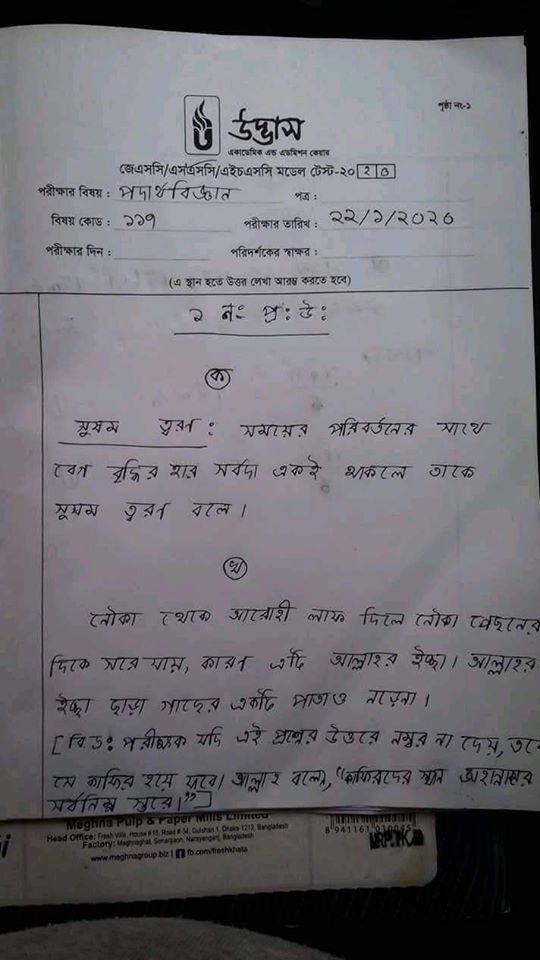 পৃষ্ঠা নং-১
উদ্ভাস
একাডেমিক এন্ড এডমিশন কেয়ার
জেএসসি/এসএসসি/এইচএসসি মডেল টেস্ট-২০২০
পরীক্ষার বিষয় : পদার্থবিজ্ঞান পত্র :
বিষয় কোড : ১১৭ পরীক্ষার তারিখ : ২২/১/২০২০
পরীক্ষার দিন : পরিদর্শকের স্বাক্ষর :
(এ স্থান হতে উত্তর লেখা আরম্ভ করতে হবে)
১ নং প্র: উ:
ক
সুষম ত্বরণ : সময়ের পরিবর্তনের সাথে
বেগ বৃদ্ধির হার সর্বদা একই থাকলে তাকে
সুষম ত্বরণ বলে।
খ
নৌকা থেকে আরোহী লাফ দিলে নৌকা পেছনের
দিকে সরে যায়, কারণ এটি আল্লাহর ইচ্ছা। আল্লাহর
ইচ্ছা ছাড়া গাছের একটি পাতাও নড়েনা।
[বি:দ্র: পরীক্ষক যদি এই প্রশ্নের উত্তরে নম্বর না দেয়, তবে
সে কাফির হয়ে যাবে। আল্লাহ বলেন, "কাফিরদের স্থান জাহান্নামের
সর্বনিম্ন স্তরে।"]
Meghna Pulp & Paper Mills Limited
Head Office: Fresh Villa, House # 15, Road # 34, Gulshan 1, Dhaka-1212, Bangladesh
Factory: Meghnaghat, Sonargaon, Narayanganj, Bangladesh
www.meghnagroup.biz | fb.com/freshkhata
8 941161 010045